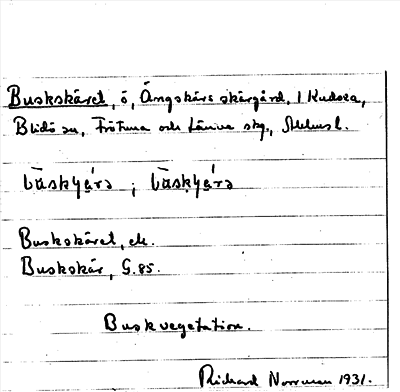 Buskskäret, ö, Ängskärs skärgård, 1 Kudoxa,
Blidö sn, Frötuna och Länna skg., Sthlms l.
Buskskäret, ek.
Buskskär, G. 85.
Buskvegetation.
Rickard Norrman 1931.